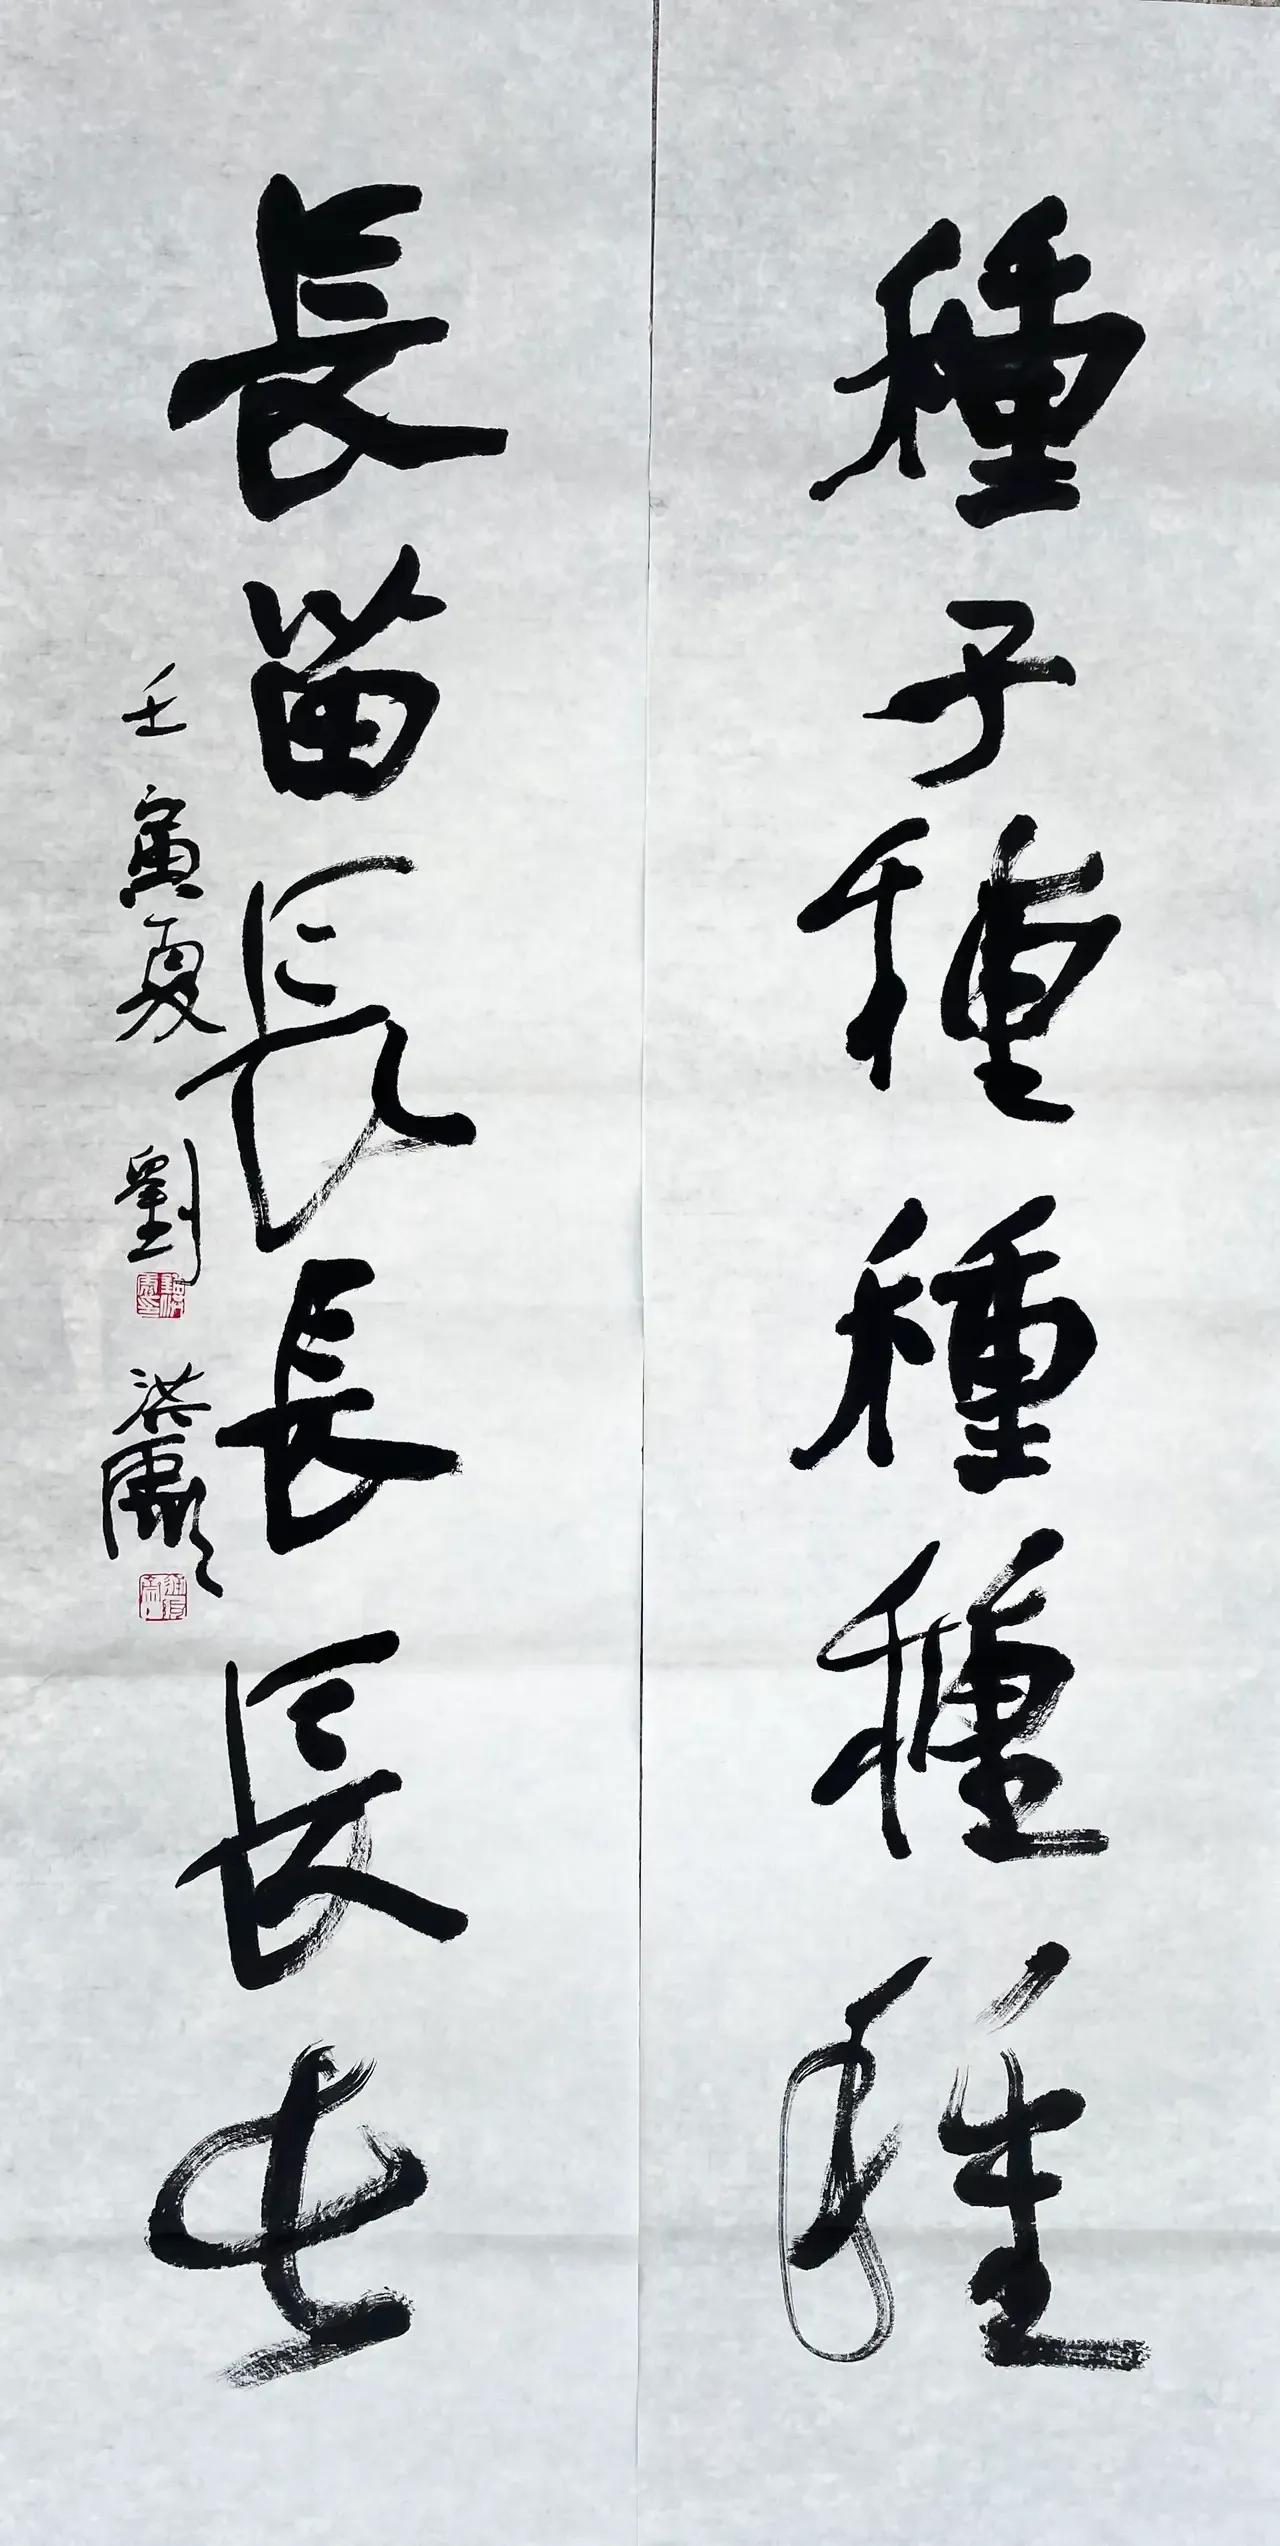 種子種種種種
長苗長長長長
壬寅夏 劉洪彪